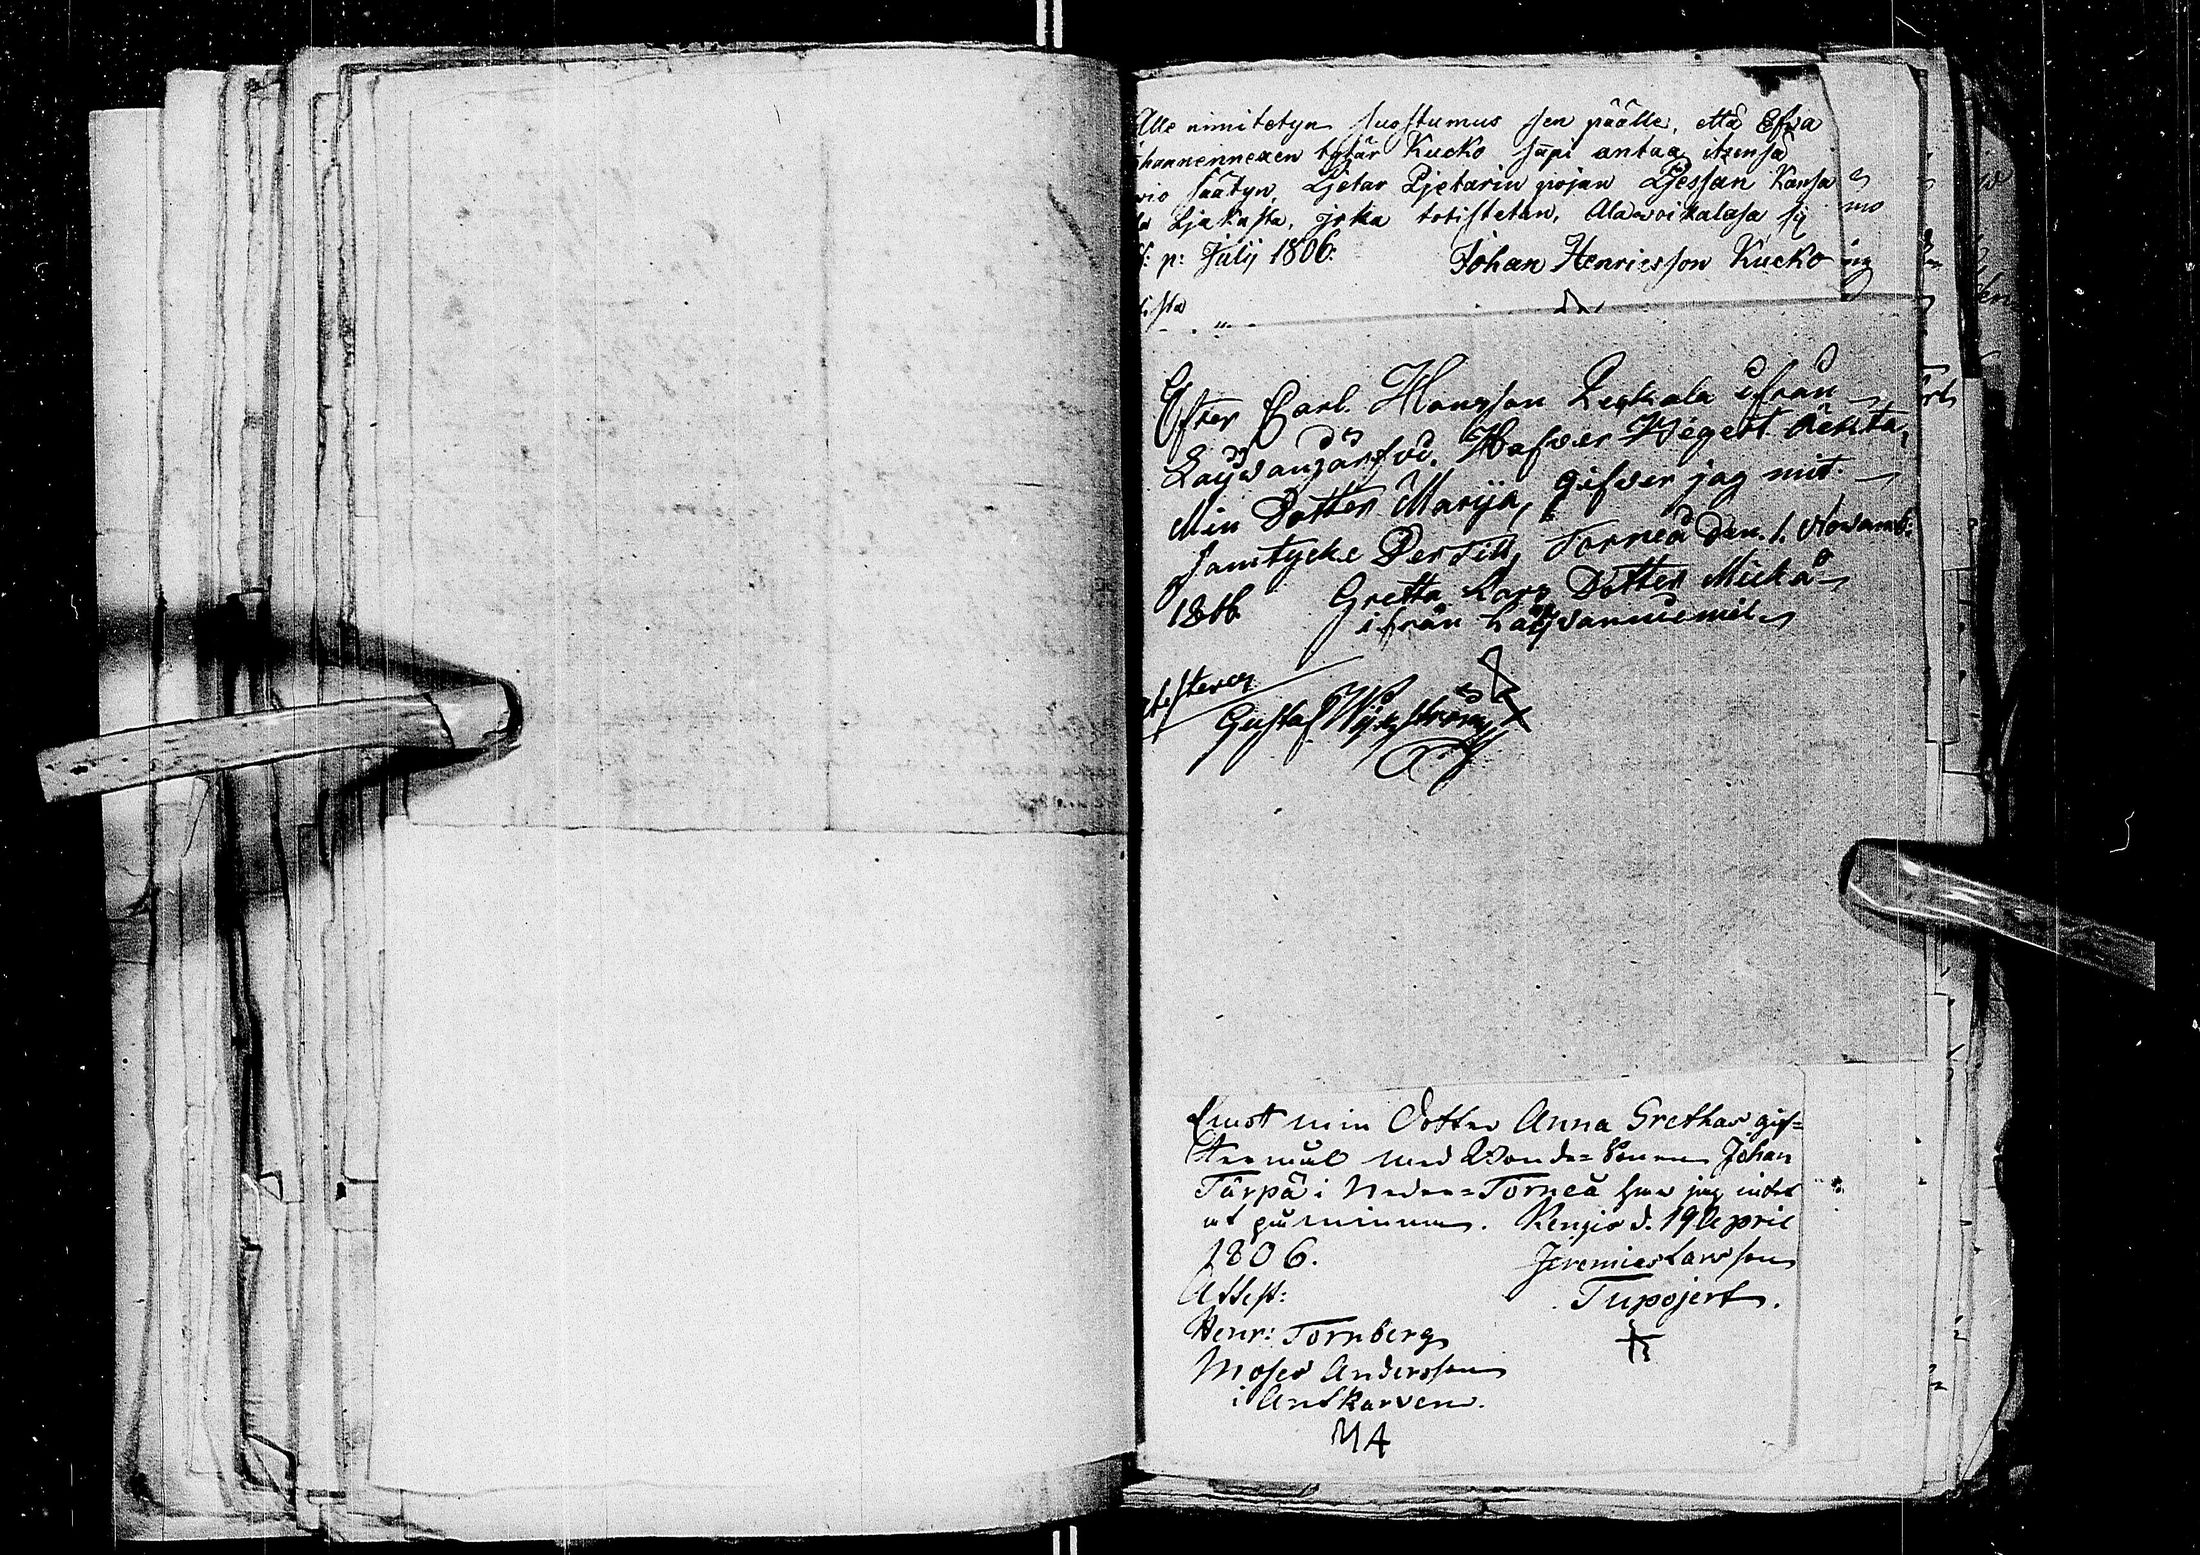 Alle nimitetyn suostumus sen päälle, että Efva
hannennexen tytär Kucko sapi antaa itzensä
wio säätyn, Pjetar Pjetarin pojan Pjessan Kansa
Pjakasta, joka totistetan, Alawoikalasa
p: Julij 1806. Johan Henricsson Kucko
Efter Carl Hansson Leskala ifrån
Hafver Begert Äckta,
Min Dotter Marija, gifver jag mit
samtycke Der Till, Torneå Den. 1. Novemb:
1806 Gretta Lars Dotter Mickä
ifrån Laijvanniemile
atesterer
Gustaf
Emot min Dotter Anna Grethas gif=
termål med Bonde=Sonen Johan
Tärpä i Neder=Torneå har jag intet
at påminna. Kengis d. 19 April
1806. Jeremias Larsson
Attest: Tupojert.
Henr: Tornberg
Moses Andersson
i Antkarven.
MA